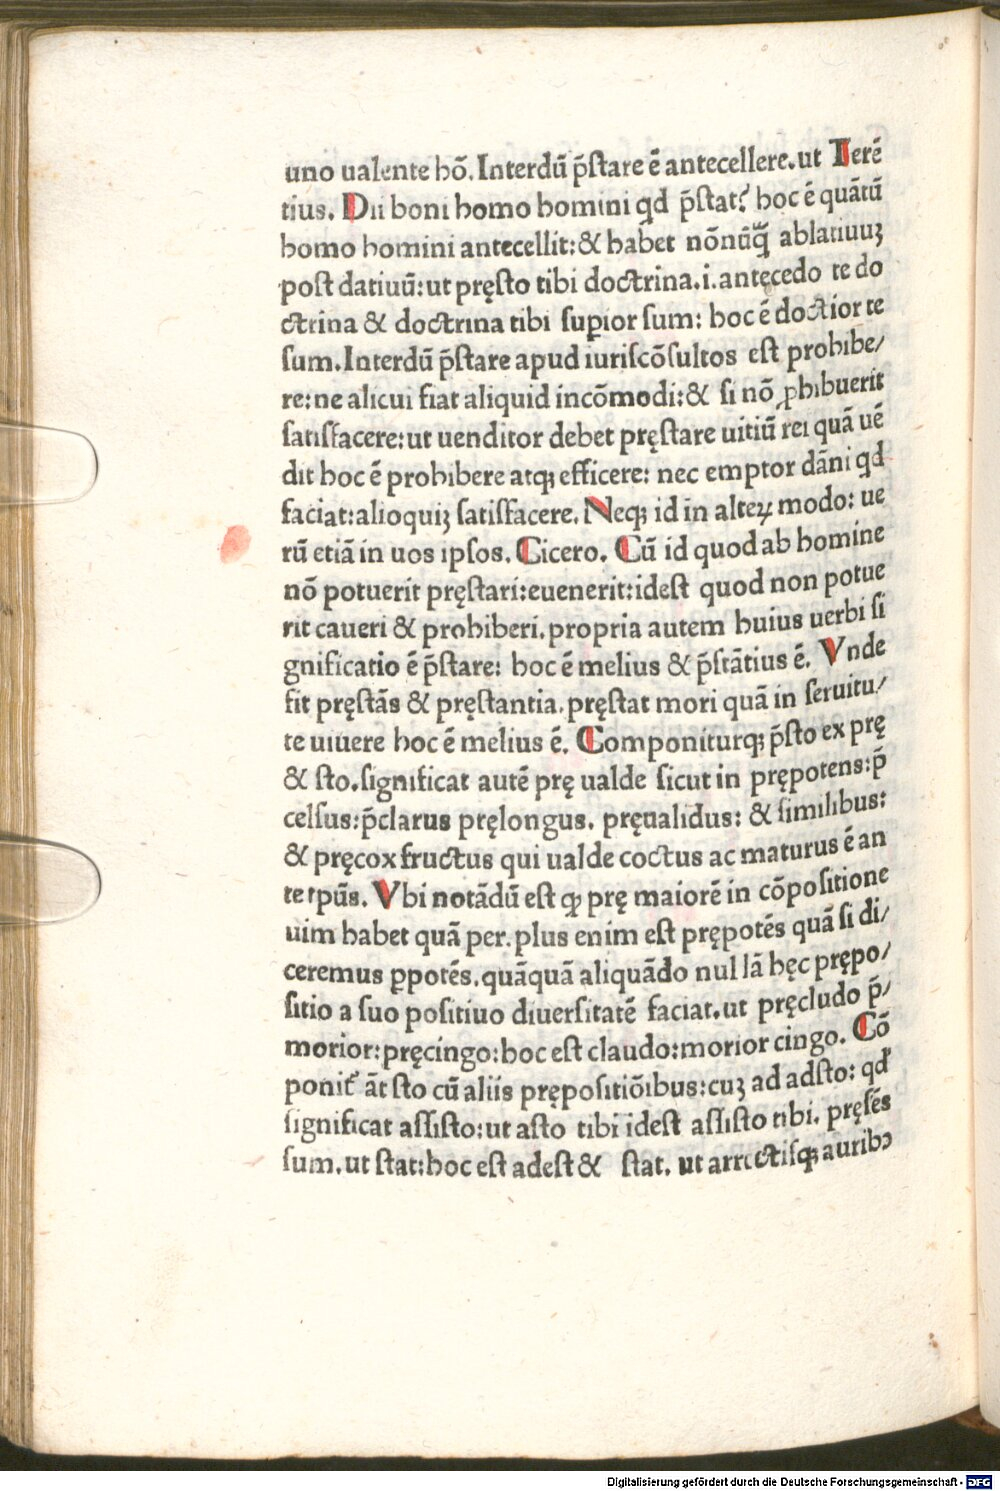 uno ualente hō. Interdū p̄stare ē antecellere. ut Terē
tius. Dii boni homo homini qd p̄stat? hoc ē quātū
homo homini antecellit: & habet nōnūq̄ ablatiuuꝫ
post datiuū: ut pręsto tibi doctrina. i. antęcedo te do
ctrina & doctrina tibi suꝑior sum: hoc ē doctior te
sum. Interdū p̄stare apud iuriscōsultos est prohibe/
re: ne alicui fiat aliquid incōmodi: & si nō ꝓhibuerit
satisfacere: ut uenditor debet pręstare uitiū rei quā uē
dit hoc ē prohibere atqꝫ efficere: nec emptor dāni qd
faciat: alioquiꝫ satisfacere. Neqꝫ id in alteꝝ modo: ue
rū etiā in uos ipsos. Cicero. Cū id quod ab homine
nō potuerit pręstari: euenerit: idest quod non potue
rit caueri & prohiberi. propria autem huius uerbi si
gnificatio ē p̄stare: hoc ē melius & p̄stātius ē. Vnde
fit pręstās & pręstantia. pręstat mori quā in seruitu/
te uiuere hoc ē melius ē. Componiturqꝫ p̄sto ex prę
& sto. significat autē prę ualde sicut in prępotens: p̄
celsus: p̄clarus pręlongus. pręualidus: & similibus:
& pręcox fructus qui ualde coctus ac maturus ē an
te tpūs. Vbi notādū est ꝙ prę maiorē in cōpositione
uim habet quā per. plus enim est prępotēs quā si di/
ceremus ꝑpotēs. quāquā aliquādo nullā hęc prępo/
sitio a suo positiuo diuersitatē faciat. ut pręcludo p̄/
morior: pręcingo: hoc est claudo: morior cingo. Cō
ponit᷑ āt sto cū aliis prępositiōibus: cuꝫ ad adsto: qd
significat assisto: ut asto tibi idest assisto tibi. pręsēs
sum. ut stat: hoc est adest & stat. ut arrectisqꝫ auribꝰ
Digitalisierung gefördert durch die Deutsche Forschungsgemeinschaft - DFG